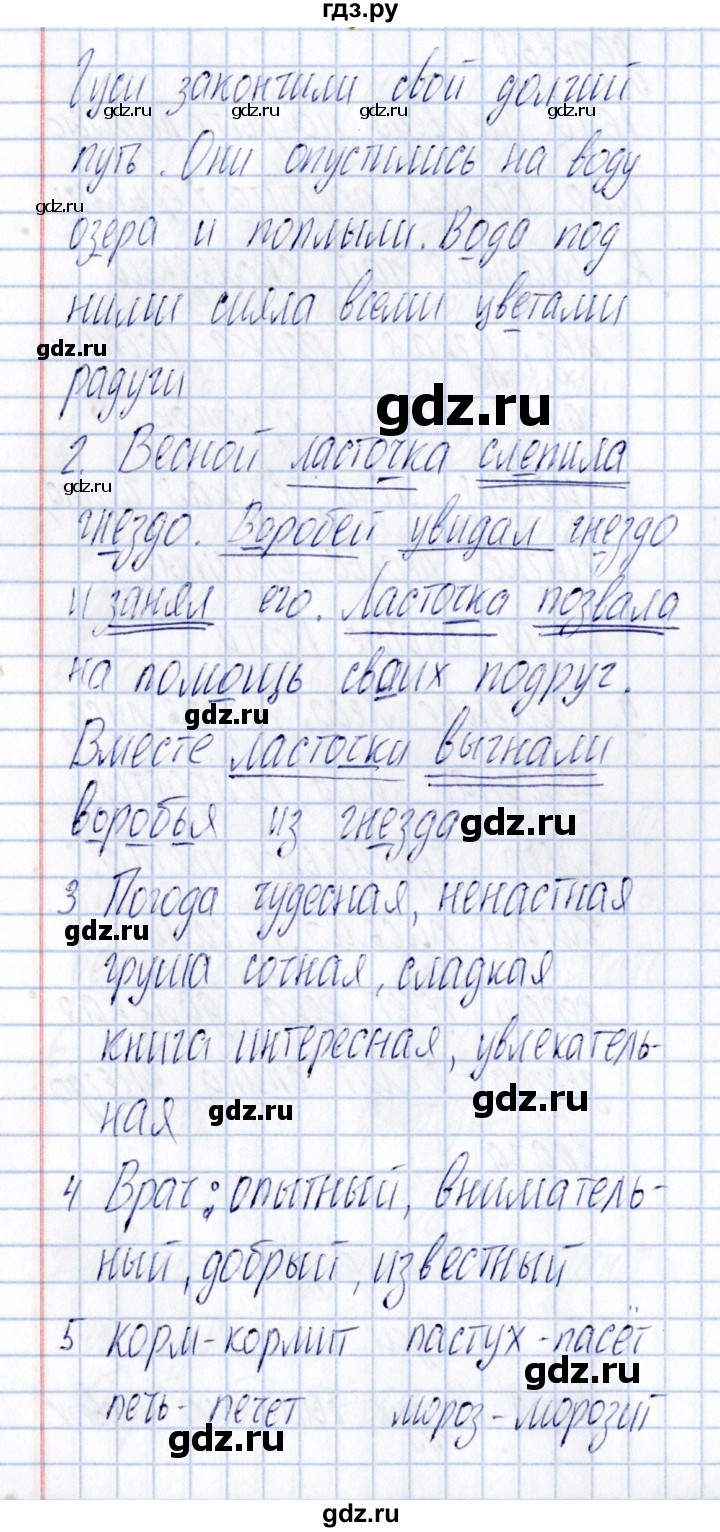 гдз.ру
Гуси закончили свой долгий
gdz.ru gdz.ru gdz.ru gdz.ru
путь. Они опустились на воду
gdz.ru
озера и поплыли. Вода под
ними сияла всеми цветами
gdz.ru
радуги
gdz.ru
2. Весной ласточка слепила
gdz.ru
гнездо. Воробей увидал гнездо
и занял его. Ласточка позвала
на помощь сваих подруг.
gdz.ru
Вместе ласточки выгнали
воробья из гнезда
gdz.ru
3 Погода чудесная, ненастная
gdz.ru
груша сочная, сладкая
книга интересная, увлекатель-
gdz.ru
ная
gdz.ru
4 Врач: опытный, вниматель-
ный, добрый, известный
5 корм-кормит пастух-пасёт
gdz.ru
печь-печет мороз-морозит
gdz.ru
gdz.ru